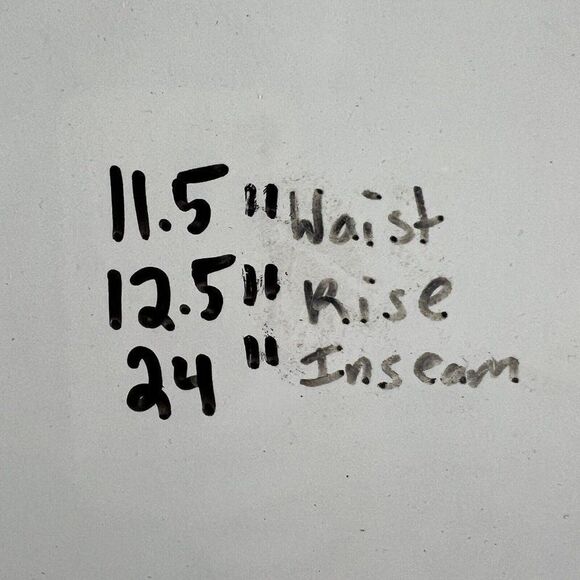 11.5" Waist
12.5" Rise
24" Inseam